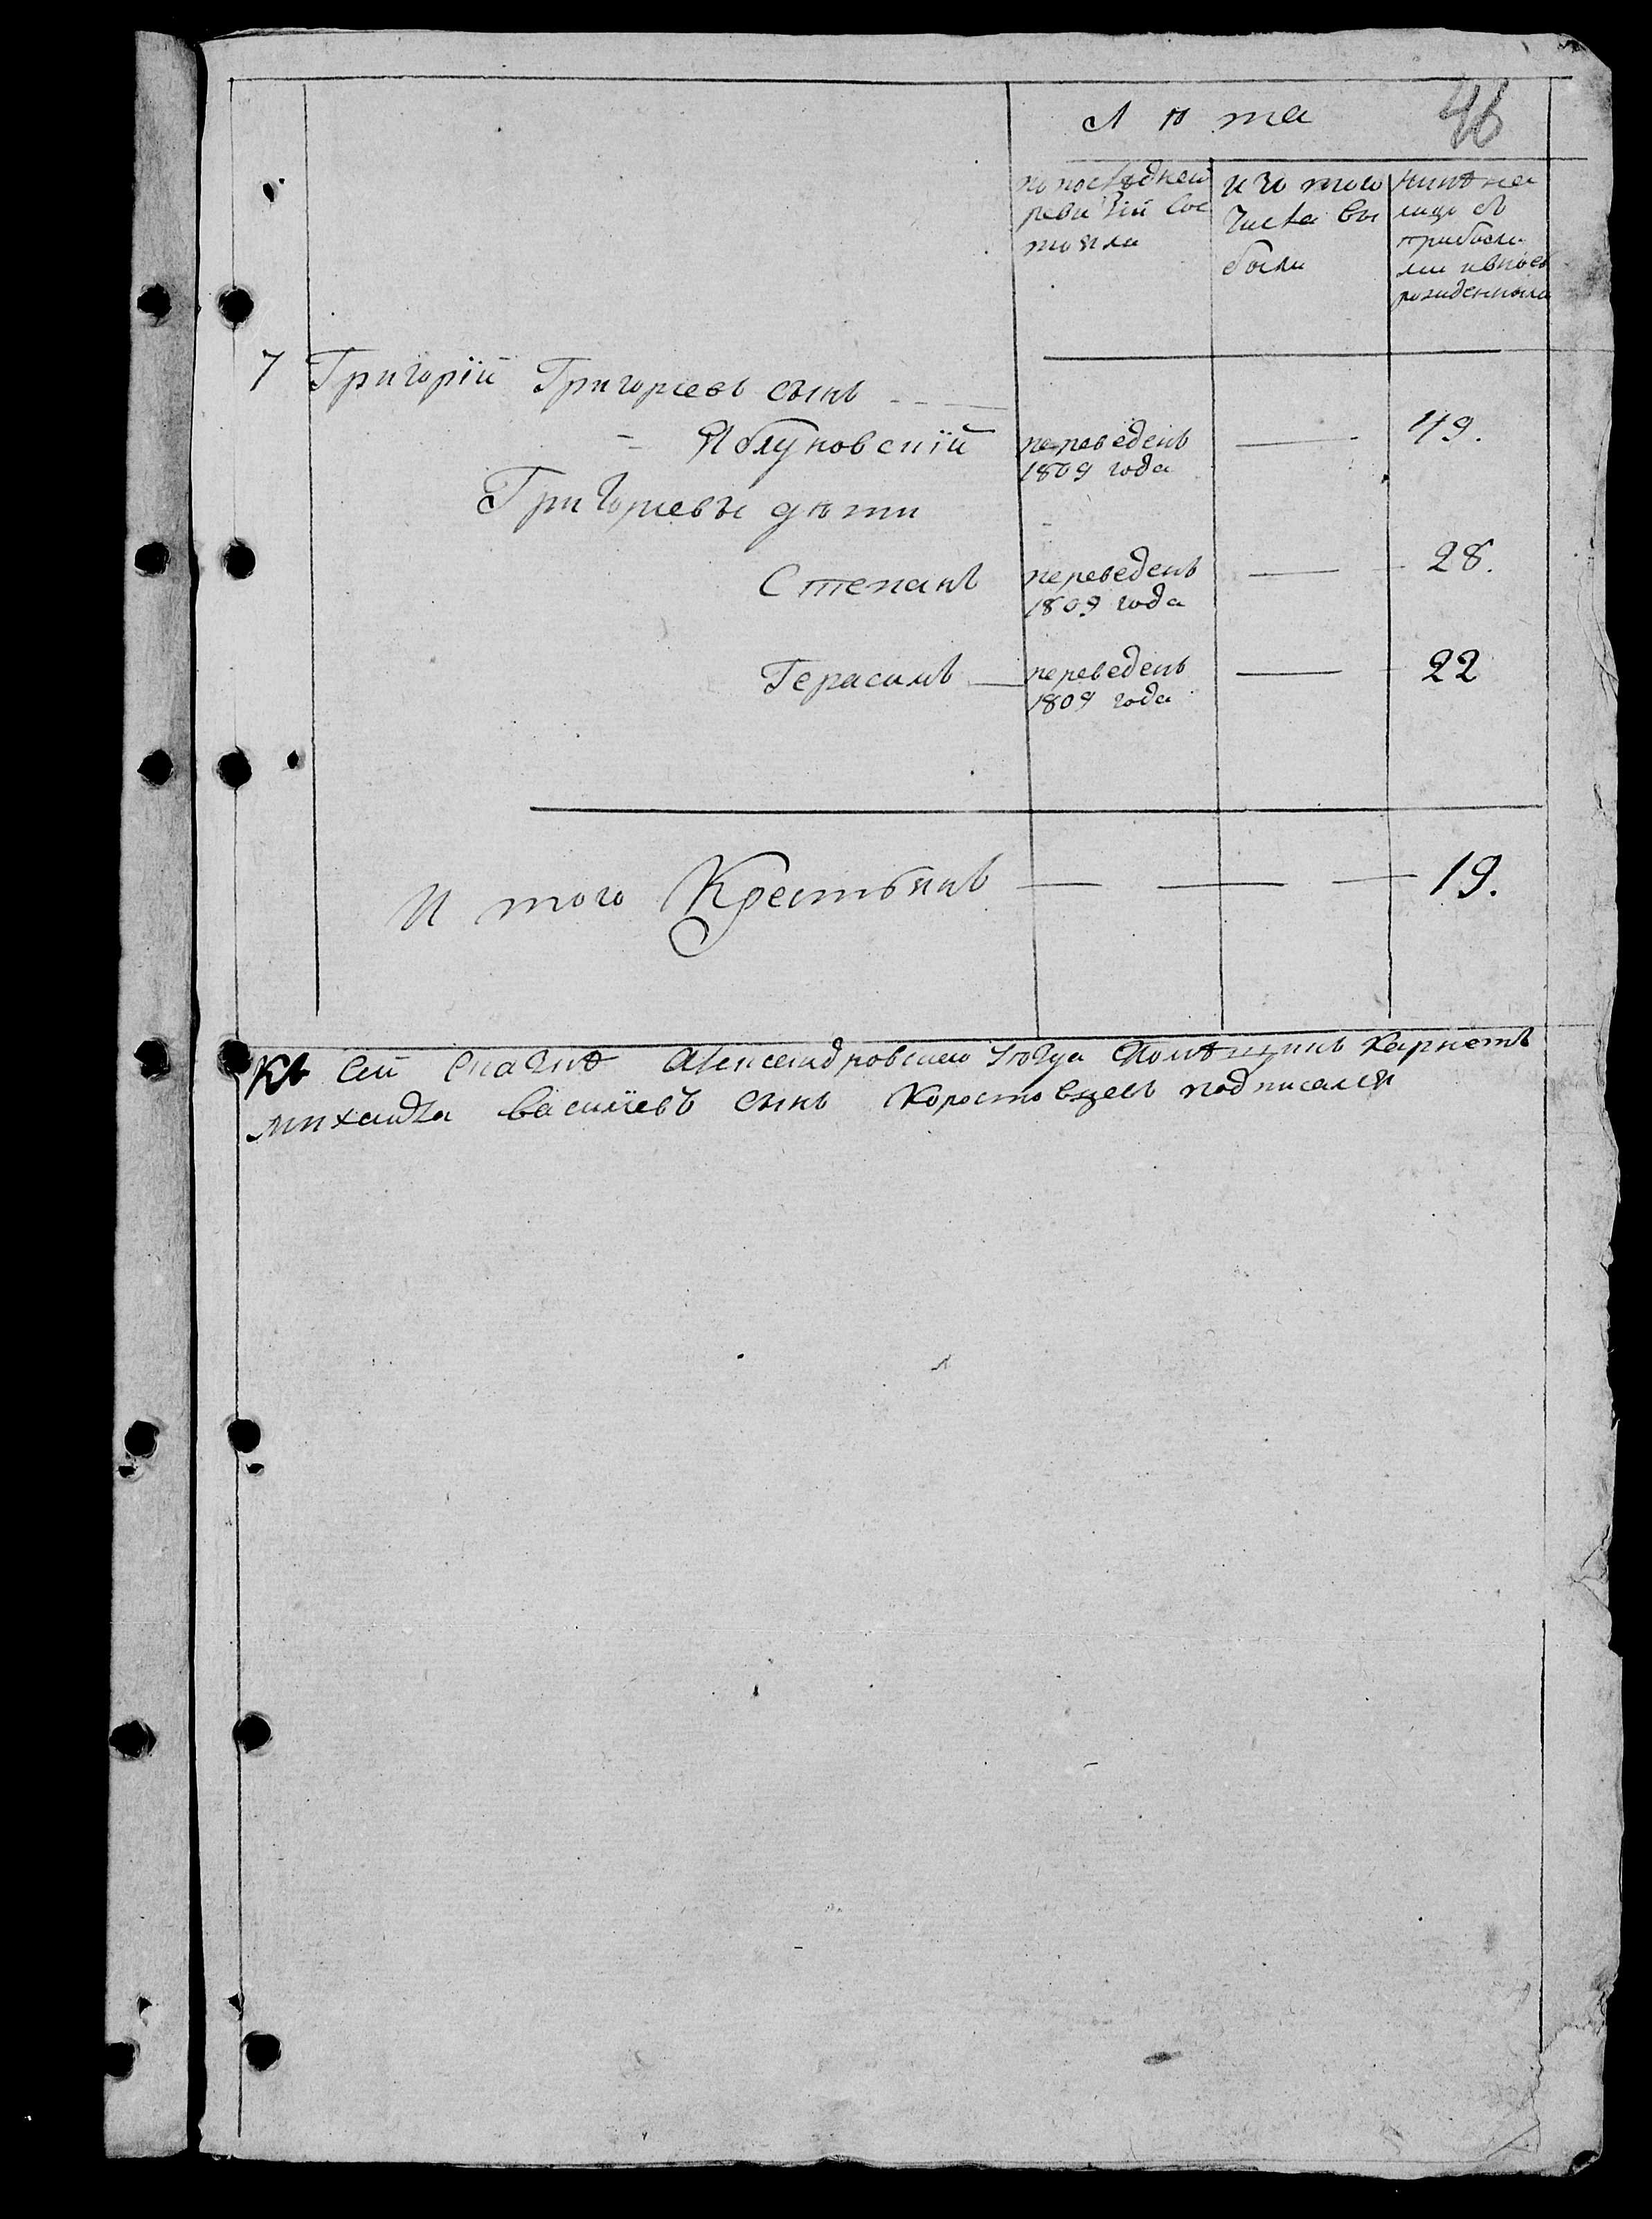 Лѣта
46
по последней
ревизіи сос
тояли
изо того
числа вы
были
нинѣ на
лицо съ
прибыли
ми ивновь
рожденными
7 Григорій Григориевъ сынъ
Яблуновскій
переведенъ
1809 года
49.
Григориевы дѣти
Степанъ
переведенъ
1809 года
28.
Герасимъ
переведенъ
1809 года
22
И того Крестьянъ
19.
Къ Сей Сказкѣ Александровскаго уѣзда Помѣщикъ Карнетъ
михайла василиевъ сынъ Коростовцевъ подписался